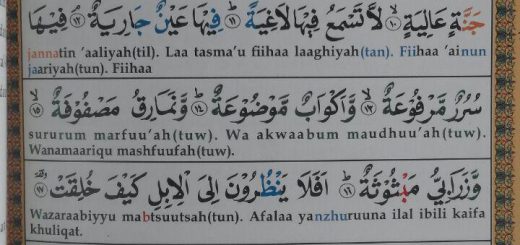 جَنَّةٍ عَالِيَةٍ ۙ ۝١٠ لَّا تَسْمَعُ فِيْهَا لَاغِيَةً ۗ ۝١١ فِيْهَا عَيْنٌ جَارِيَةٌ ۘ ۝١٢ فِيْهَا
jannatin 'aaliyah(til). Laa tasma'u fiihaa laaghiyah(tan). Fiihaa 'ainun
jaariyah(tun). Fiihaa
سُرُرٌ مَّرْفُوْعَةٌ ۙ ۝١٣ وَّاَكْوَابٌ مَّوْضُوْعَةٌ ۙ ۝١٤ وَّنَمَارِقُ مَصْفُوْفَةٌ ۙ ۝١٥
sururum marfuu'ah(tuw). Wa akwaabum maudhuu'ah(tuw).
Wanamaariqu mashfuufah(tuw).
وَّزَرَابِيُّ مَبْثُوْثَةٌ ۗ ۝١٦ اَفَلَا يَنْظُرُوْنَ اِلَى الْاِبِلِ كَيْفَ خُلِقَتْ ۝١٧
Wazaraabiyyu mabtsuutsah(tun). Afalaa yanzhuruuna ilal ibili kaifa
khuliqat.